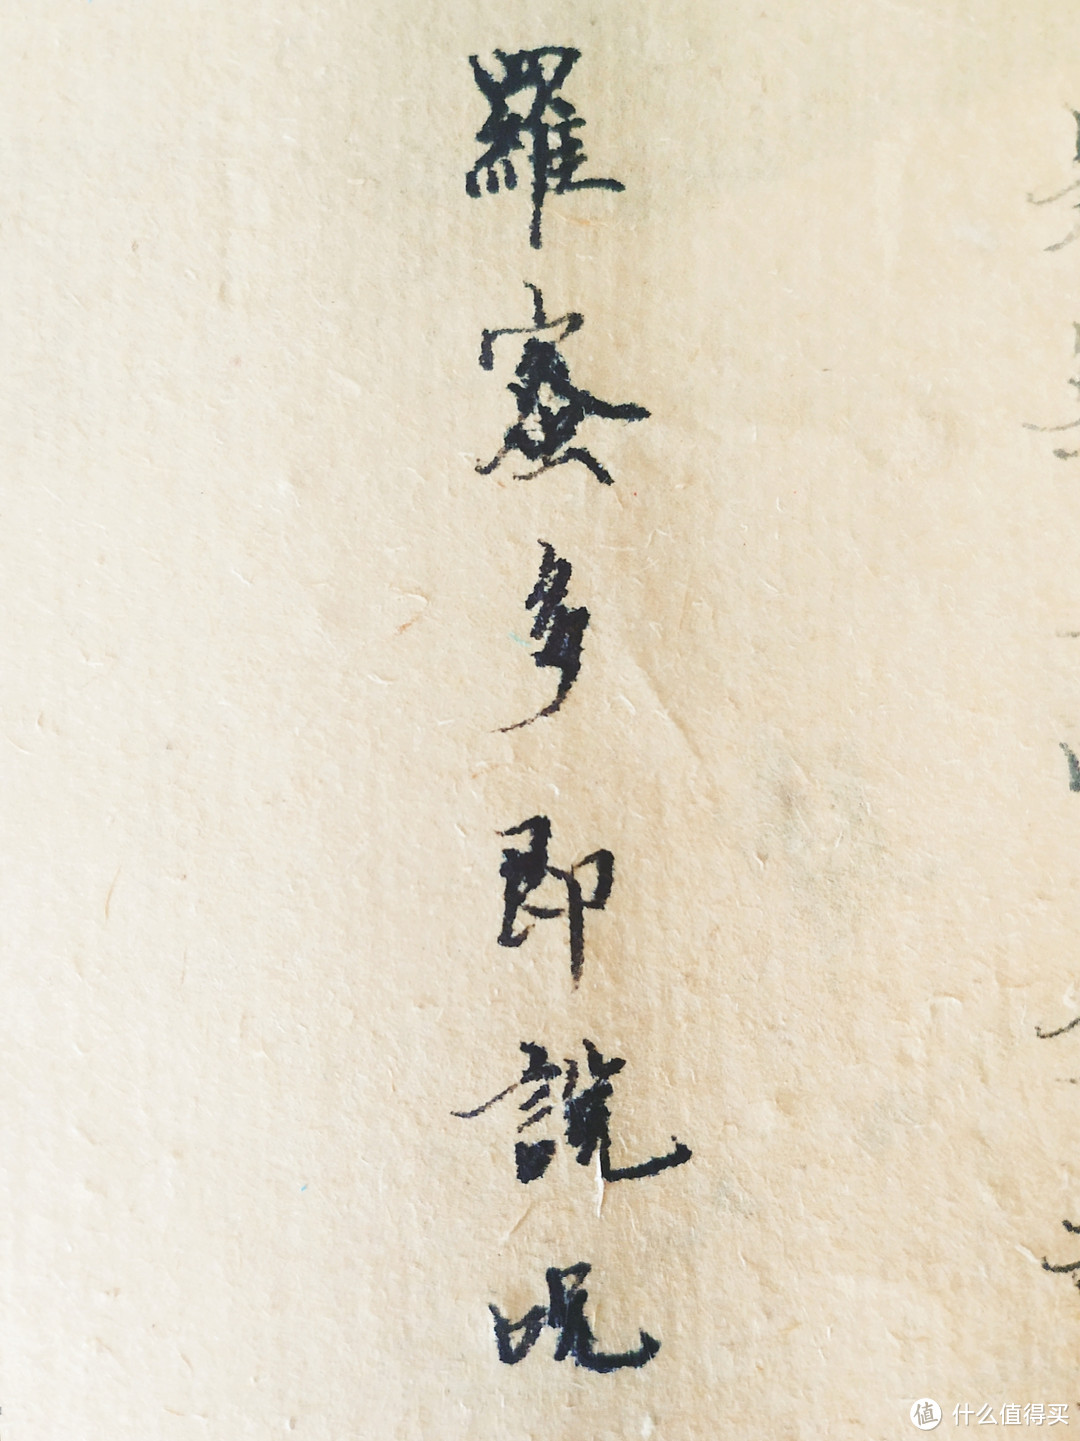 羅蜜多即說呪
值 什么值得买